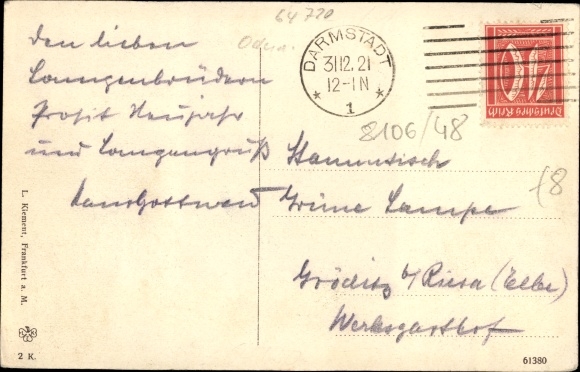 64720
Odw.
DARMSTADT
31.12.21
12-1 N
* 1 *
40
Deutsches Reich
den lieben
Lampenbrüdern
Prosit Neujahr
und Lampengruß
8106/48
Stammtisch
Grüne Lampe
Gröditz b/ Riesa (Elbe)
Werksgasthof
18
L. Klement, Frankfurt a. M.
2 K.
61380